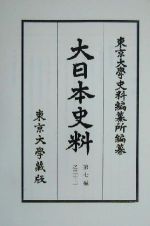 東京大學史料編纂所編纂
大日本史料
第七編
東京大學藏版